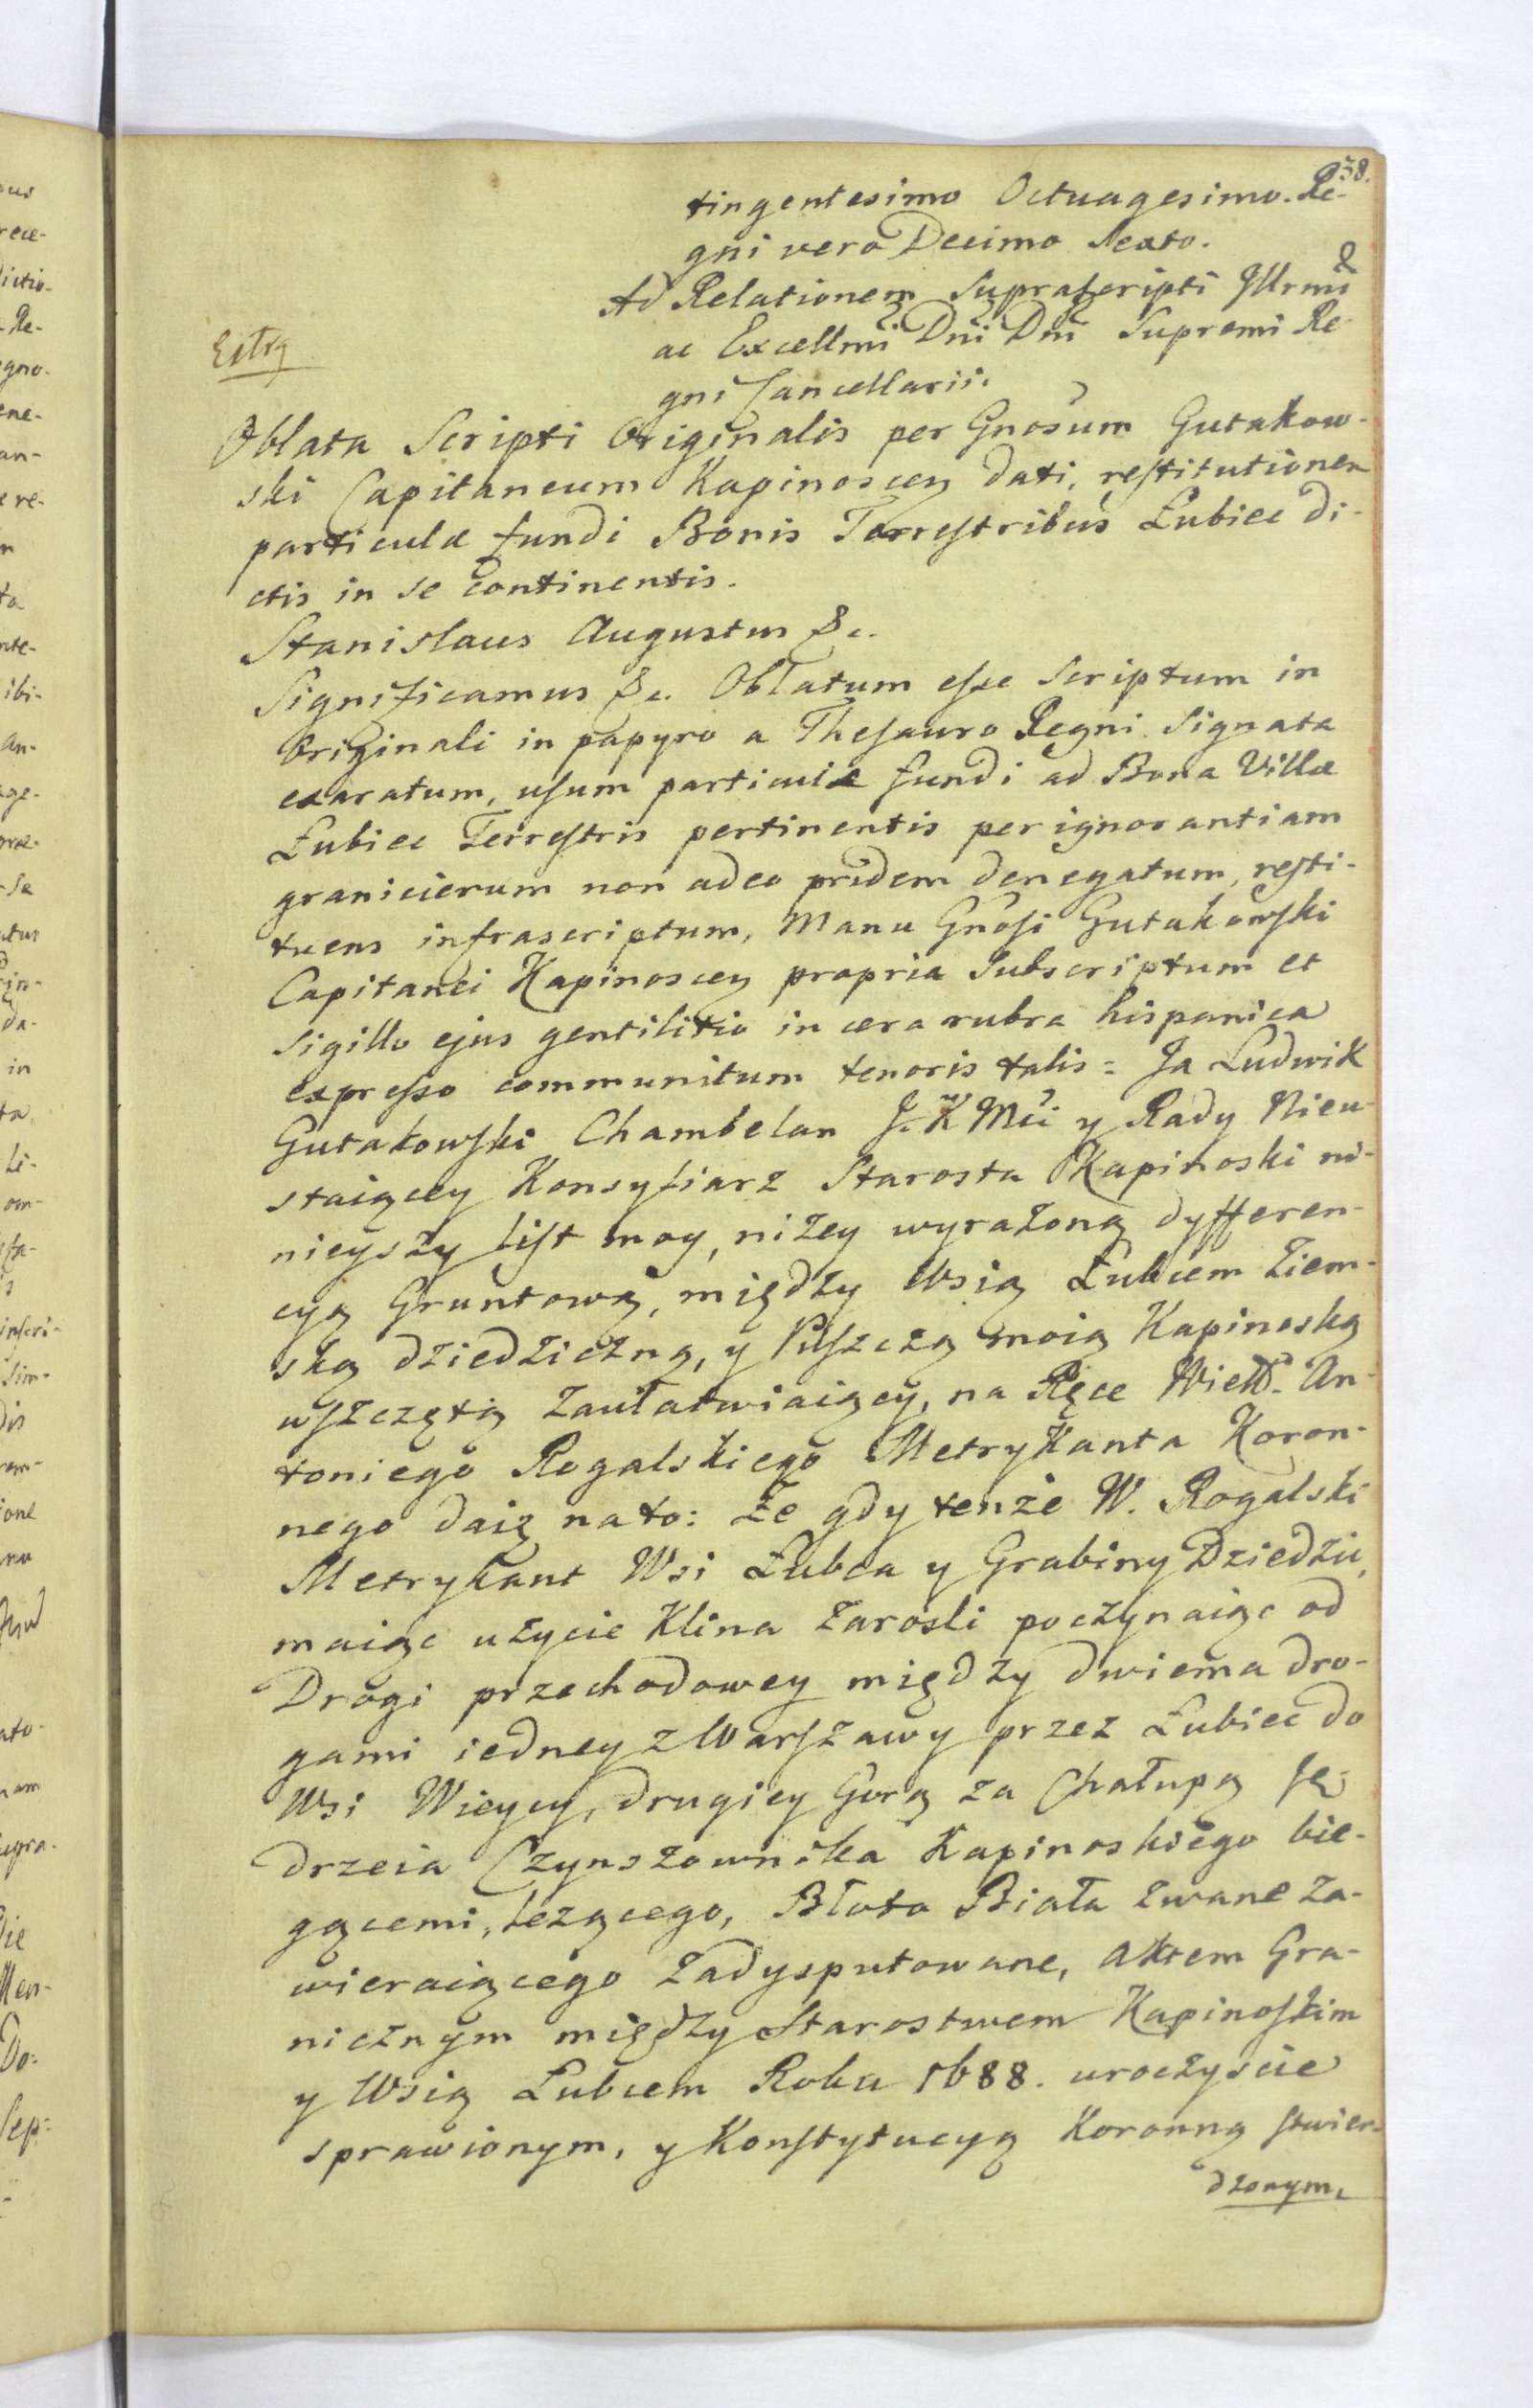 38.
tingentesimo Octuagesimo. Re-
gni vero Decimo Sexto.
Ad Relationem Suprascripti Illrmi &
ac Excellmi Dni Dni Supremi Re-
gni Cancellarii.
Extrą
Oblata Scripti Originalis per Gnosum Gutakow-
ski Capitaneum Kapinoscen dati, restitutionem
particulæ fundi Bonis Terrestribus Łubiec di-
ctis in se continentis.
Stanislaus Augustus &c.
Significamus &c. Oblatum esse Scriptum in
Originali in papyro a Thesauro Regni Signata
exaratum, usum particulæ fundi ad Bona Villæ
Łubiec Terrestris pertinentis per ignorantiam
granicierum non adeo pridem denegatum, resti-
tuens infrascriptum, Manu Gnosi Gutakowski
Capitanei Kapinoscen propria Subscriptum et
Sigillo ejus gentilitio in cera rubra hispanica
expresso communitum tenoris talis = Ja Ludwik
Gutakowski Chambelan J. K Mci y Rady Nieu-
staiącey Konsyliarz Starosta Kapinoski ni-
nieyszy list moy, niżey wyrażoną dyfferen-
cyą Gruntową, między Wsią Łubcem Ziem-
ską dziedziczną, y Puszczą moią Kapinoską
wszczętą załatwiaiący, na Ręce Wielł. An-
toniego Rogalskiego Metrykanta Koron-
nego daię na to: Że gdy tenże W. Rogalski
Metrykant Wsi Łubca y Grabiny Dziedzic,
maiąc użycie Klina Zarośli poczynaiąc od
Drogi przechodowey między dwiema dro-
gami iedney z Warszawy przez Łubiec do
Wsi Wieycy, drugiey Gorą za Chałupą Ję-
drzeia Czynszownika Kapinoskiego bie-
gącemi, leżącego, Błoto Biała zwane za-
wieraiącego zadysputowane, aktem Gra-
nicznym między Starostwem Kapinoskim
y Wsią Łubcem Roku 1688. uroczyscie
sprawionym, y Konstytucyą Koronną stwier-
dzonym,